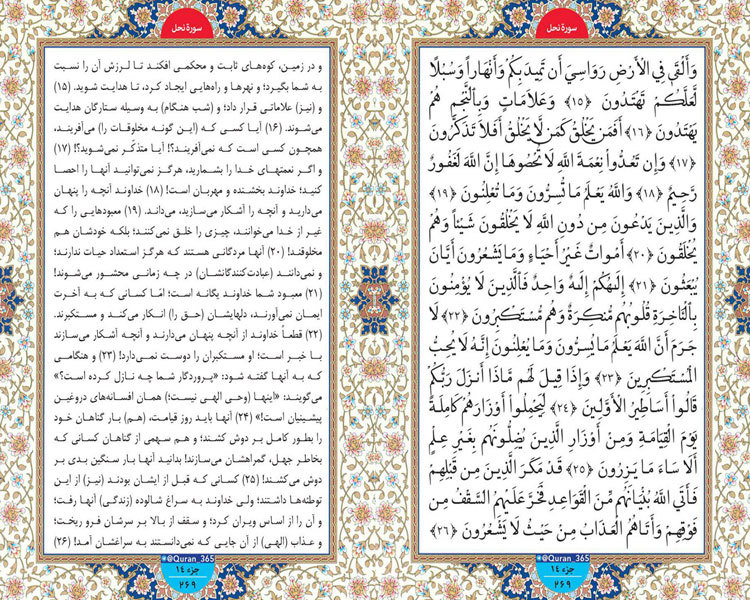 سورة نحل
وَأَلْقَىٰ فِي الْأَرْضِ رَوَاسِيَ أَن تَمِيدَ بِكُمْ وَأَنْهَاراً وَسُبُلًا
لَّعَلَّكُمْ تَهْتَدُونَ ﴿۱۵﴾ وَعَلَامَاتٍ وَبِالنَّجْمِ هُمْ
يَهْتَدُونَ ﴿۱۶﴾ أَفَمَن يَخْلُقُ كَمَن لَّا يَخْلُقُ أَفَلَا تَذَكَّرُونَ
﴿۱۷﴾ وَإِن تَعُدُّوا نِعْمَةَ اللَّهِ لَا تُحْصُوهَا إِنَّ اللَّهَ لَغَفُورٌ
رَّحِيمٌ ﴿۱۸﴾ وَاللَّهُ يَعْلَمُ مَا تُسِرُّونَ وَمَا تُعْلِنُونَ ﴿۱۹﴾
وَالَّذِينَ يَدْعُونَ مِن دُونِ اللَّهِ لَا يَخْلُقُونَ شَيْئاً وَهُمْ
يُخْلَقُونَ ﴿۲۰﴾ أَمْوَاتٌ غَيْرُ أَحْيَاءٍ وَمَا يَشْعُرُونَ أَيَّانَ
يُبْعَثُونَ ﴿۲۱﴾ إِلَٰهُكُمْ إِلَٰهٌ وَاحِدٌ فَالَّذِينَ لَا يُؤْمِنُونَ
بِالْآخِرَةِ قُلُوبُهُم مُّنكِرَةٌ وَهُم مُّسْتَكْبِرُونَ ﴿۲۲﴾ لَا
جَرَمَ أَنَّ اللَّهَ يَعْلَمُ مَا يُسِرُّونَ وَمَا يُعْلِنُونَ إِنَّهُ لَا يُحِبُّ
الْمُسْتَكْبِرِينَ ﴿۲۳﴾ وَإِذَا قِيلَ لَهُم مَّاذَا أَنزَلَ رَبُّكُمْ
قَالُوا أَسَاطِيرُ الْأَوَّلِينَ ﴿۲۴﴾ لِيَحْمِلُوا أَوْزَارَهُمْ كَامِلَةً
يَوْمَ الْقِيَامَةِ وَمِنْ أَوْزَارِ الَّذِينَ يُضِلُّونَهُم بِغَيْرِ عِلْمٍ
أَلَا سَاءَ مَا يَزِرُونَ ﴿۲۵﴾ قَدْ مَكَرَ الَّذِينَ مِن قَبْلِهِمْ
فَأَتَى اللَّهُ بُنْيَانَهُم مِّنَ الْقَوَاعِدِ فَخَرَّ عَلَيْهِمُ السَّقْفُ مِن
فَوْقِهِمْ وَأَتَاهُمُ الْعَذَابُ مِنْ حَيْثُ لَا يَشْعُرُونَ ﴿۲۶﴾
@Quran_365
جزء ۱۴
۲۶۹
سورة نحل
و در زمین، کوه‌های ثابت و محکمی افکند تا لرزش آن را نسبت
به شما بگیرد؛ و نهرها و راه‌هایی ایجاد کرد، تا هدایت شوید. (۱۵)
و (نیز) علاماتی قرار داد؛ و (شب هنگام) به وسیله ستارگان هدایت
می‌شوند. (۱۶) آیا کسی که (این گونه مخلوقات را) می‌آفریند،
همچون کسی است که نمی‌آفریند؟! آیا متذکّر نمی‌شوید؟! (۱۷)
و اگر نعمتهای خدا را بشمارید، هرگز نمی‌توانید آنها را احصا
کنید؛ خداوند بخشنده و مهربان است! (۱۸) خداوند آنچه را پنهان
می‌دارید و آنچه را آشکار می‌سازید، می‌داند. (۱۹) معبودهایی را که
غیر از خدا می‌خوانند، چیزی را خلق نمی‌کنند؛ بلکه خودشان هم
مخلوقند! (۲۰) آنها مردگانی هستند که هرگز استعداد حیات ندارند؛
و نمی‌دانند (عبادت‌کنندگانشان) در چه زمانی محشور می‌شوند!
(۲۱) معبود شما خداوند یگانه است؛ امّا کسانی که به آخرت
ایمان نمی‌آورند، دلهایشان (حق را) انکار می‌کند و مستکبرند.
(۲۲) قطعاً خداوند از آنچه پنهان می‌دارند و آنچه آشکار می‌سازند
با خبر است؛ او مستکبران را دوست نمی‌دارد! (۲۳) و هنگامی
که به آنها گفته شود: «پروردگار شما چه نازل کرده است؟»
می‌گویند: «اینها (وحی الهی نیست؛) همان افسانه‌های دروغین
پیشینیان است!» (۲۴) آنها باید روز قیامت، (هم) بار گناهان خود
را بطور کامل بر دوش کشند؛ و هم سهمی از گناهان کسانی که
بخاطر جهل، گمراهشان می‌سازند! بدانید آنها بار سنگین بدی بر
دوش می‌کشند! (۲۵) کسانی که قبل از ایشان بودند (نیز) از این
توطئه‌ها داشتند؛ ولی خداوند به سراغ شالوده (زندگی) آنها رفت؛
و آن را از اساس ویران کرد؛ و سقف از بالا بر سرشان فرو ریخت؛
و عذاب (الهی) از آن جایی که نمی‌دانستند به سراغشان آمد! (۲۶)
@Quran_365
جزء ۱۴
۲۶۹